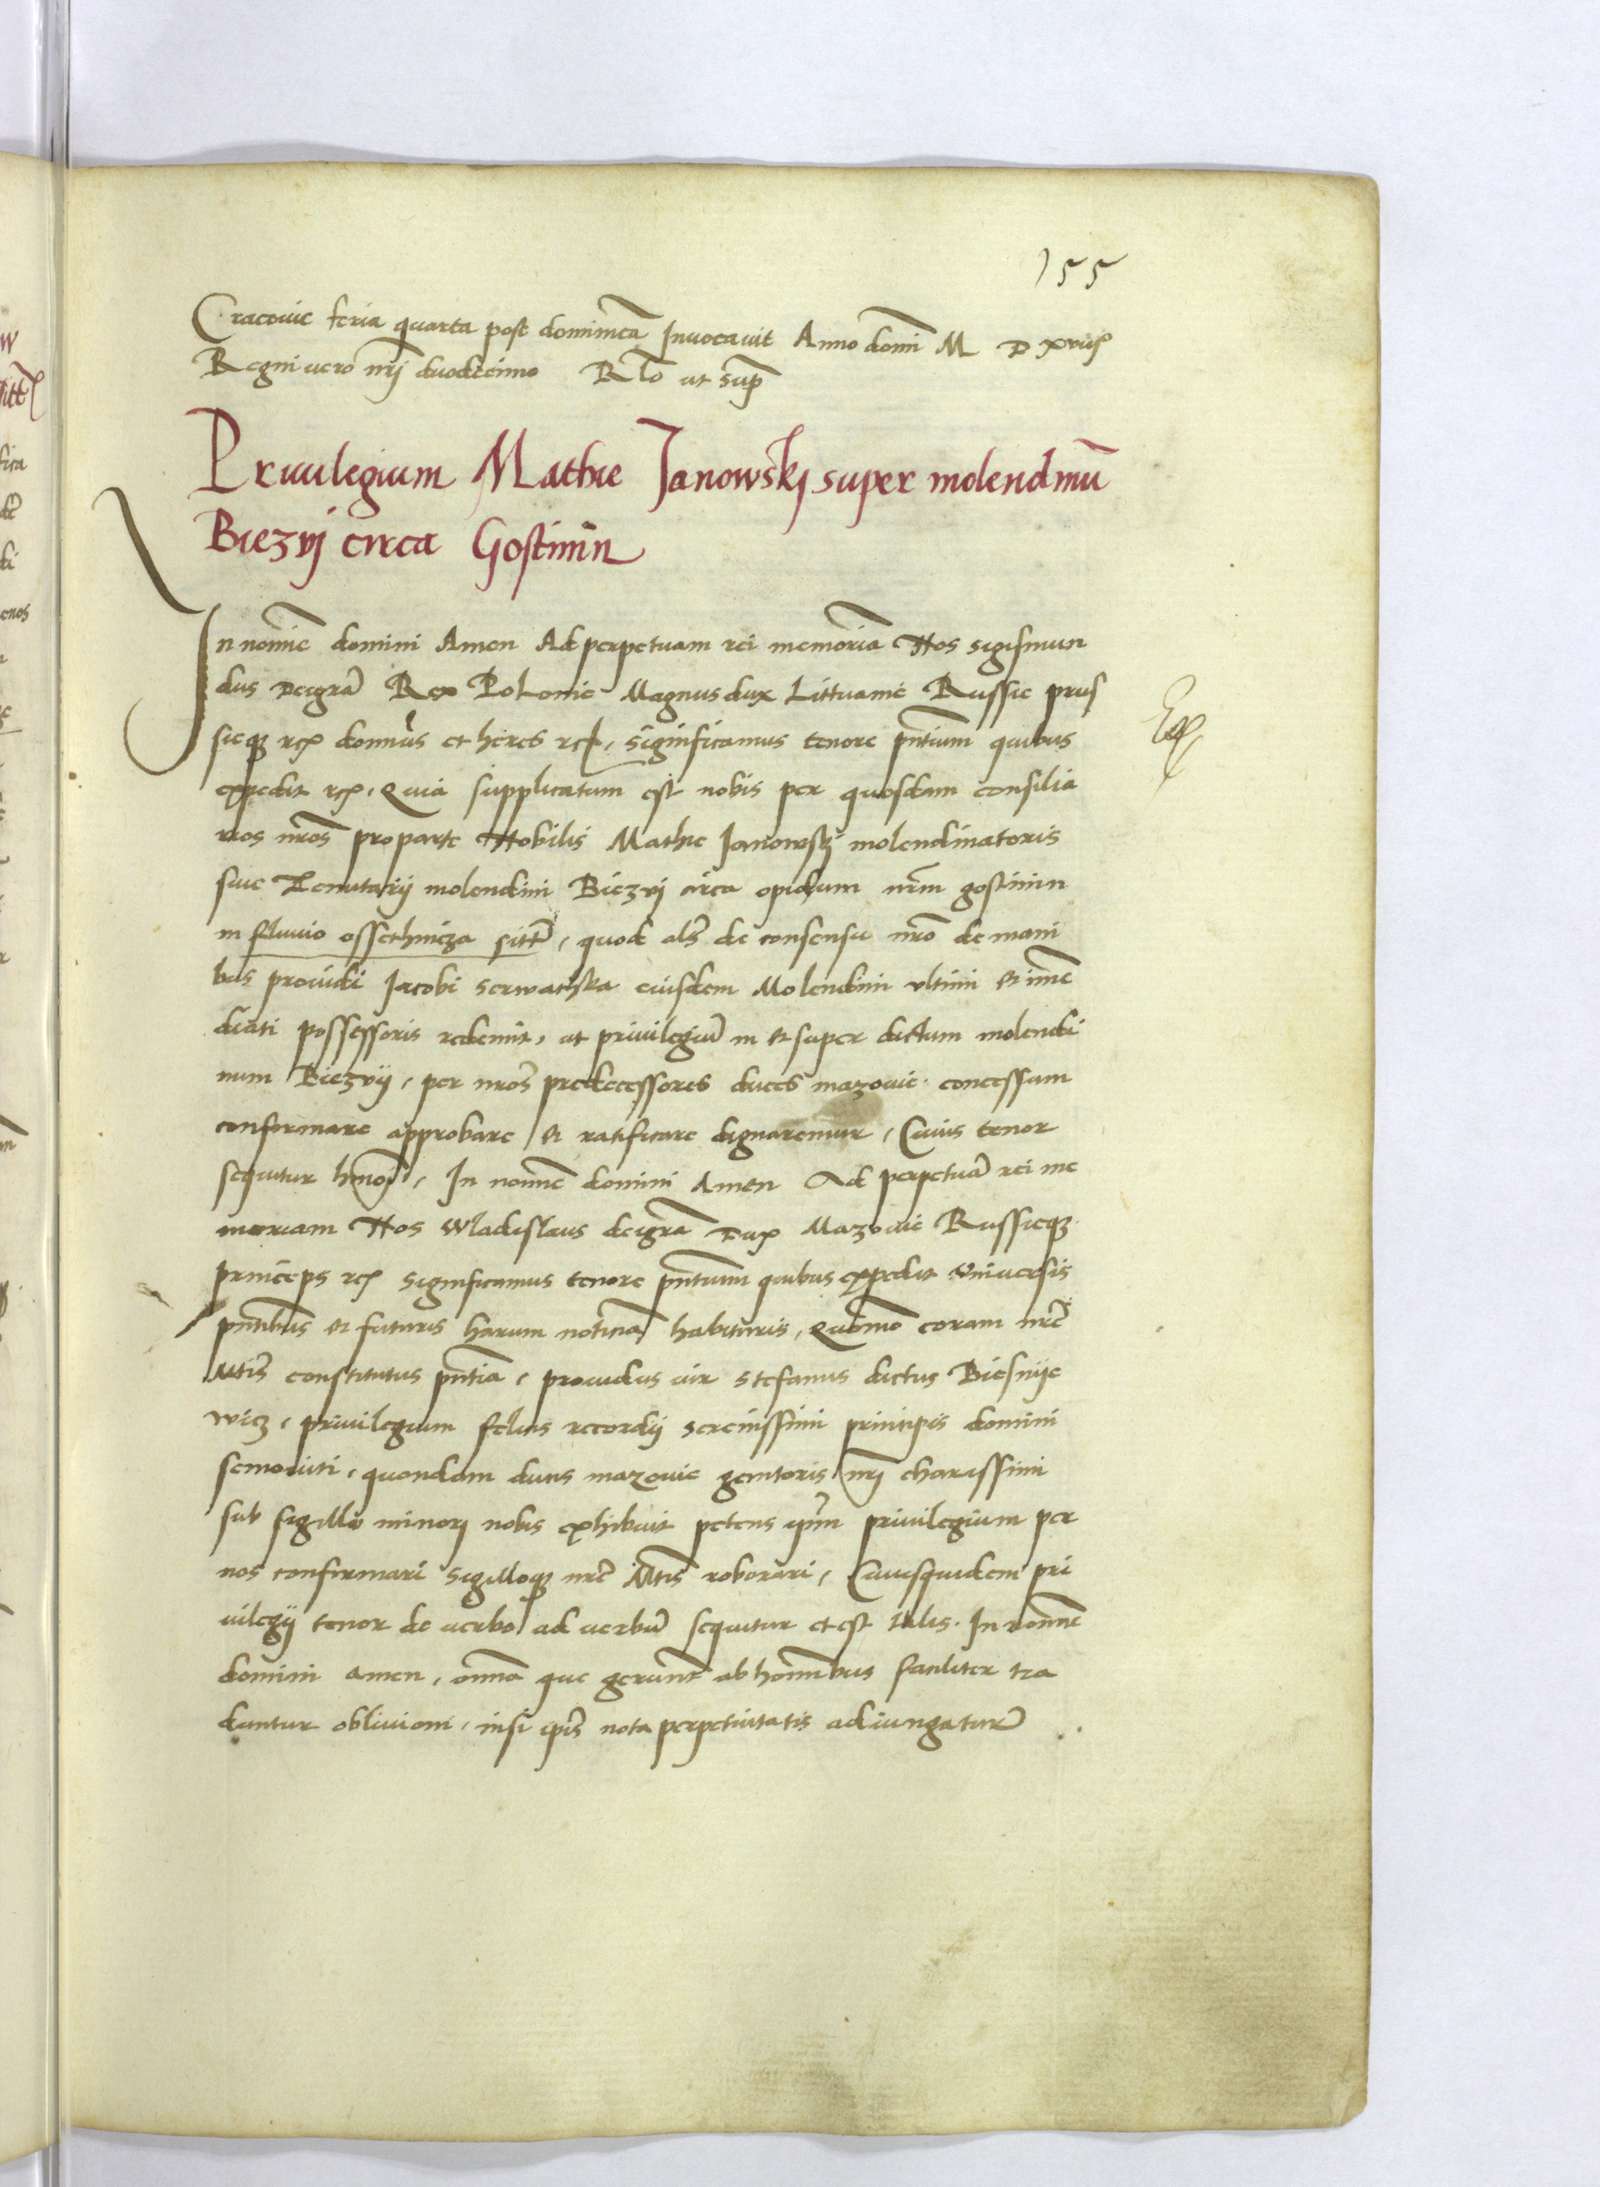 155
Cracovie feria quarta post dominicā Invocavit Anno domī M D xviijͦ
Regni vero nrī duodecimo Rlō ut supͣ
Privilegium Mathie Janowskj super molendinū
Biezvj circa Gostinin
In nomīe domini Amen Ad perpetuam rei memoriā Nos sigismun
dus Dei grā Rex Polonie Magnus dux Littuanie Russie prus
sieqȝ rcͭ dominus et heres rcͭ, significamus tenore pn̄tium quibus
expedit rcͭ, Quia supplicatum est nobis per quosdam consilia
rios nr̄os pro parte Nobilis Mathie Janowskj molendinatoris
sive Tenutarij molendini Biezvj circa opidum nr̄m gostinin
in fluvio ossethnicza sitī, quod als̄ de consensu nr̄o de mani
bus providi Jacobi serwathka eiusdem Molendini ultimi et im̄e
diati possessoris redemit, ut privilegiū in et super dictum molendi
num Biezvij, per nr̄os predecessores duces mazovie concessum
confirmare approbare et ratificare dignaremur, Cuius tenor
sequitur hmōi, In nomīe domini Amen Ad perpetuā rei me
moriam Nos Wladislaus dei grā Dux Mazovie Russieqȝ
princeps rcͭ significamus tenore pn̄tium quibus expedit universis
pn̄tibus et futuris harum noticiā habituris, Quōmō coram nrē
Mtis̄ constitutus pn̄tia, providus vir stefanus dictus Biesnije
wicz, privilegium felicis recordij serenissimi principis domini
semoviti, quondam ducis mazovie genitoris nrī charissimi
sub sigillo minorj nobis exhibuit petens ip̄m privilegium per
nos confirmari sigilloqȝ nrē Mtis̄ roborari, Cuiusquidem pri
vilegij tenor de verbo ad verbū sequitur et est talis. In nomīe
domini amen, om̄ia que gerunt̄ ab hom̄ibus faciliter tra
duntur oblivioni, nisi ip̄is nota perpetuitatis adiungatur